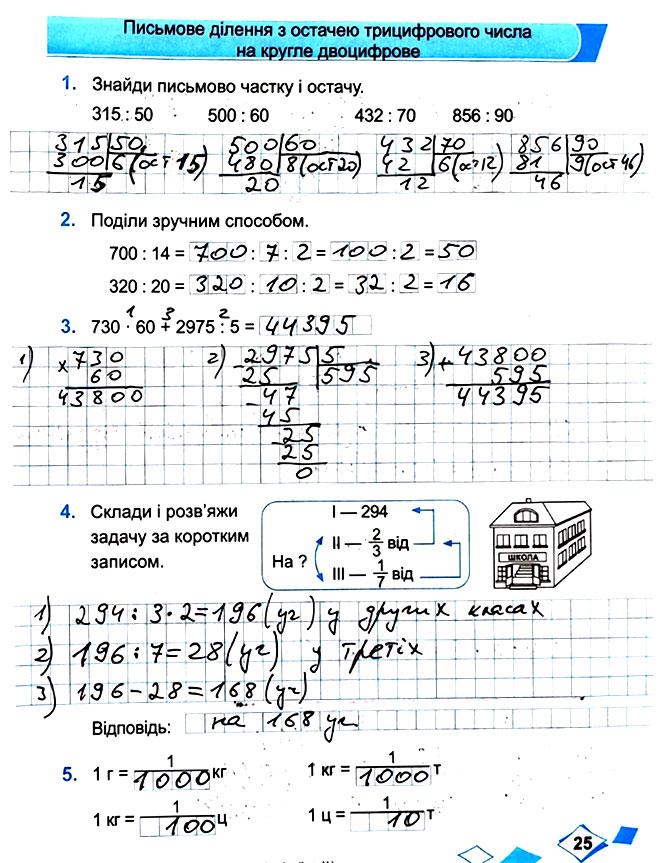 Письмове ділення з остачею трицифрового числа
на кругле двоцифрове
1. Знайди письмово частку і остачу.
315 : 50 500 : 60 432 : 70 856 : 90
315 50 500 60 432 70 856 90
300 6 (ост 15) 480 8 (ост 20) 42 6 (ост 12) 81 9 (ост 46)
15 20 12 46
2. Поділи зручним способом.
700 : 14 = 700 : 7 : 2 = 100 : 2 = 50
320 : 20 = 320 : 10 : 2 = 32 : 2 = 16
1 3 2
3. 730 · 60 + 2975 : 5 = 44395
1) × 730 2) - 2975 5 3) + 43800
60 25 595 595
43800 - 47 44395
45
- 25
25
0
4. Склади і розв'яжи
задачу за коротким
записом.
І — 294
ІІ — 2/3 від
На ?
ІІІ — 1/7 від
ШКОЛА
1) 294 : 3 · 2 = 196 (уч) у других класах
2) 196 : 7 = 28 (уч) у третіх
3) 196 - 28 = 168 (уч)
Відповідь: на 168 уч.
5. 1 г = 1/1000 кг 1 кг = 1/1000 т
1 кг = 1/100 ц 1 ц = 1/10 т
25